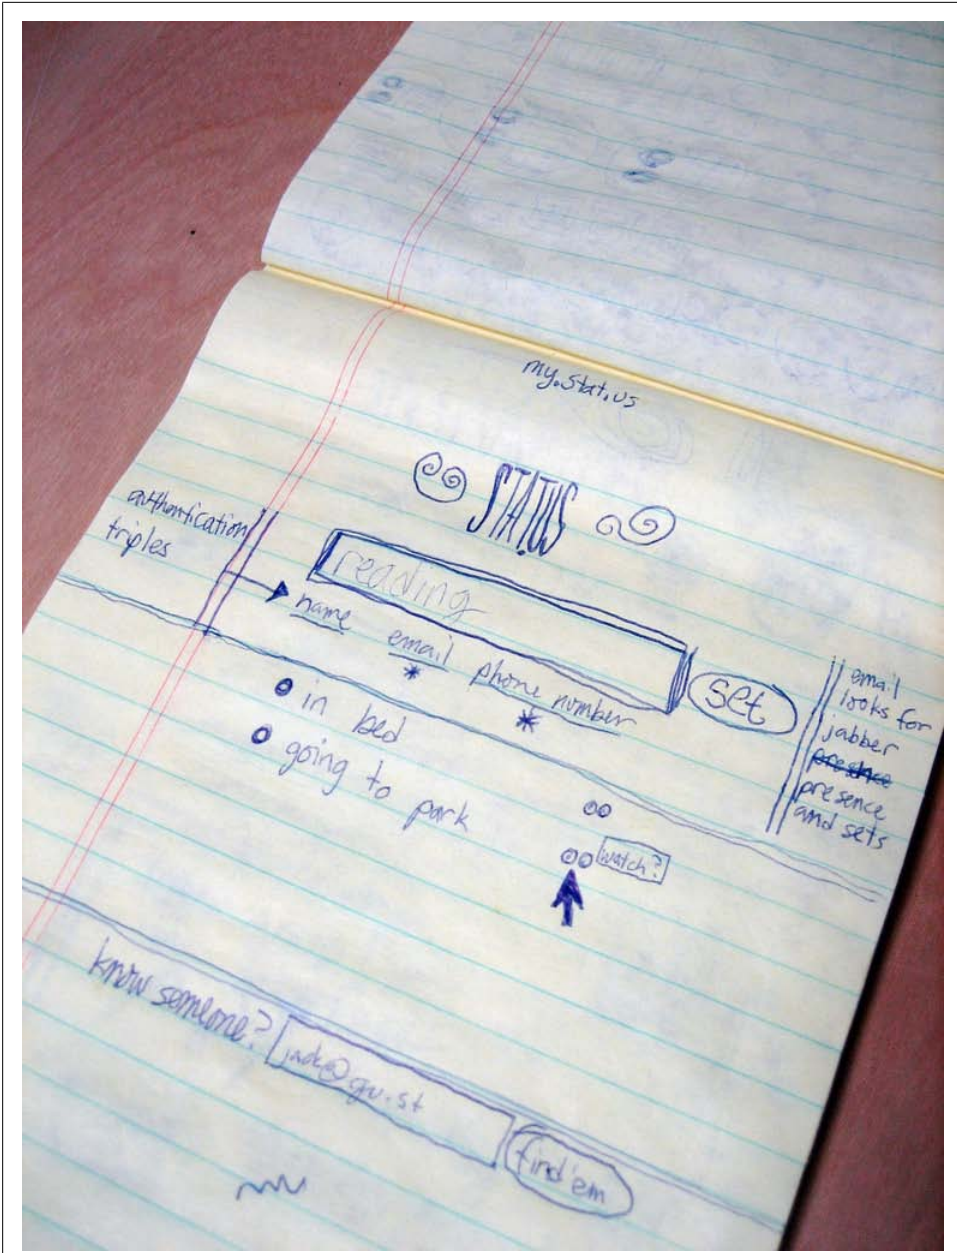 my.stat.us
STAT!US
authentication
triples
reading
name email phone number
* *
set
email
looks for
jabber
presence
and sets
in bed
going to park
watch?
know someone?
jack@gu.st
find'em